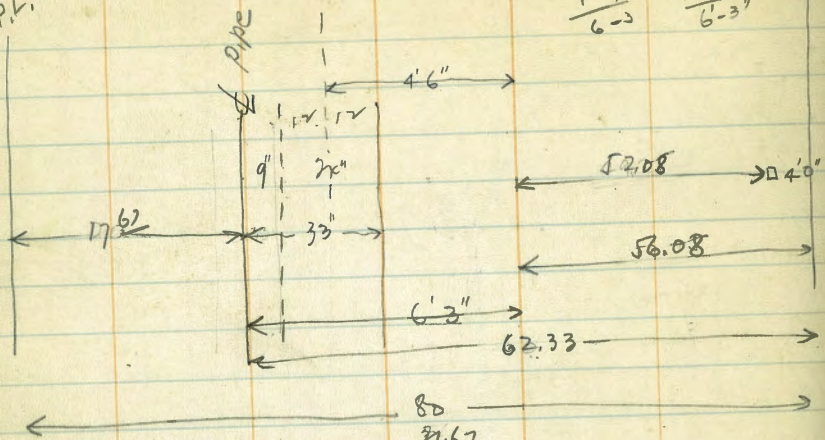 ℄ pipe
6'-3"
4'6"
12 12
9"
52.08
4'0"
17 67
33"
56.08
6' 3"
62.33
80